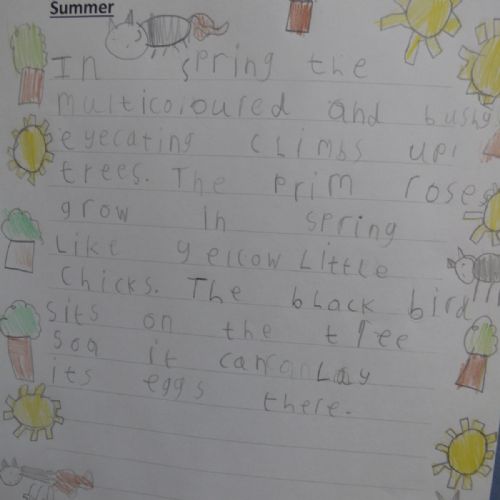 Summer
In spring the
multicoloured and bushy
eyecating climbs up
trees. The prim roses
grow in spring
Like yellow Little
Chicks. The black bird
sits on the tree
soa it can Lay
its eggs there.